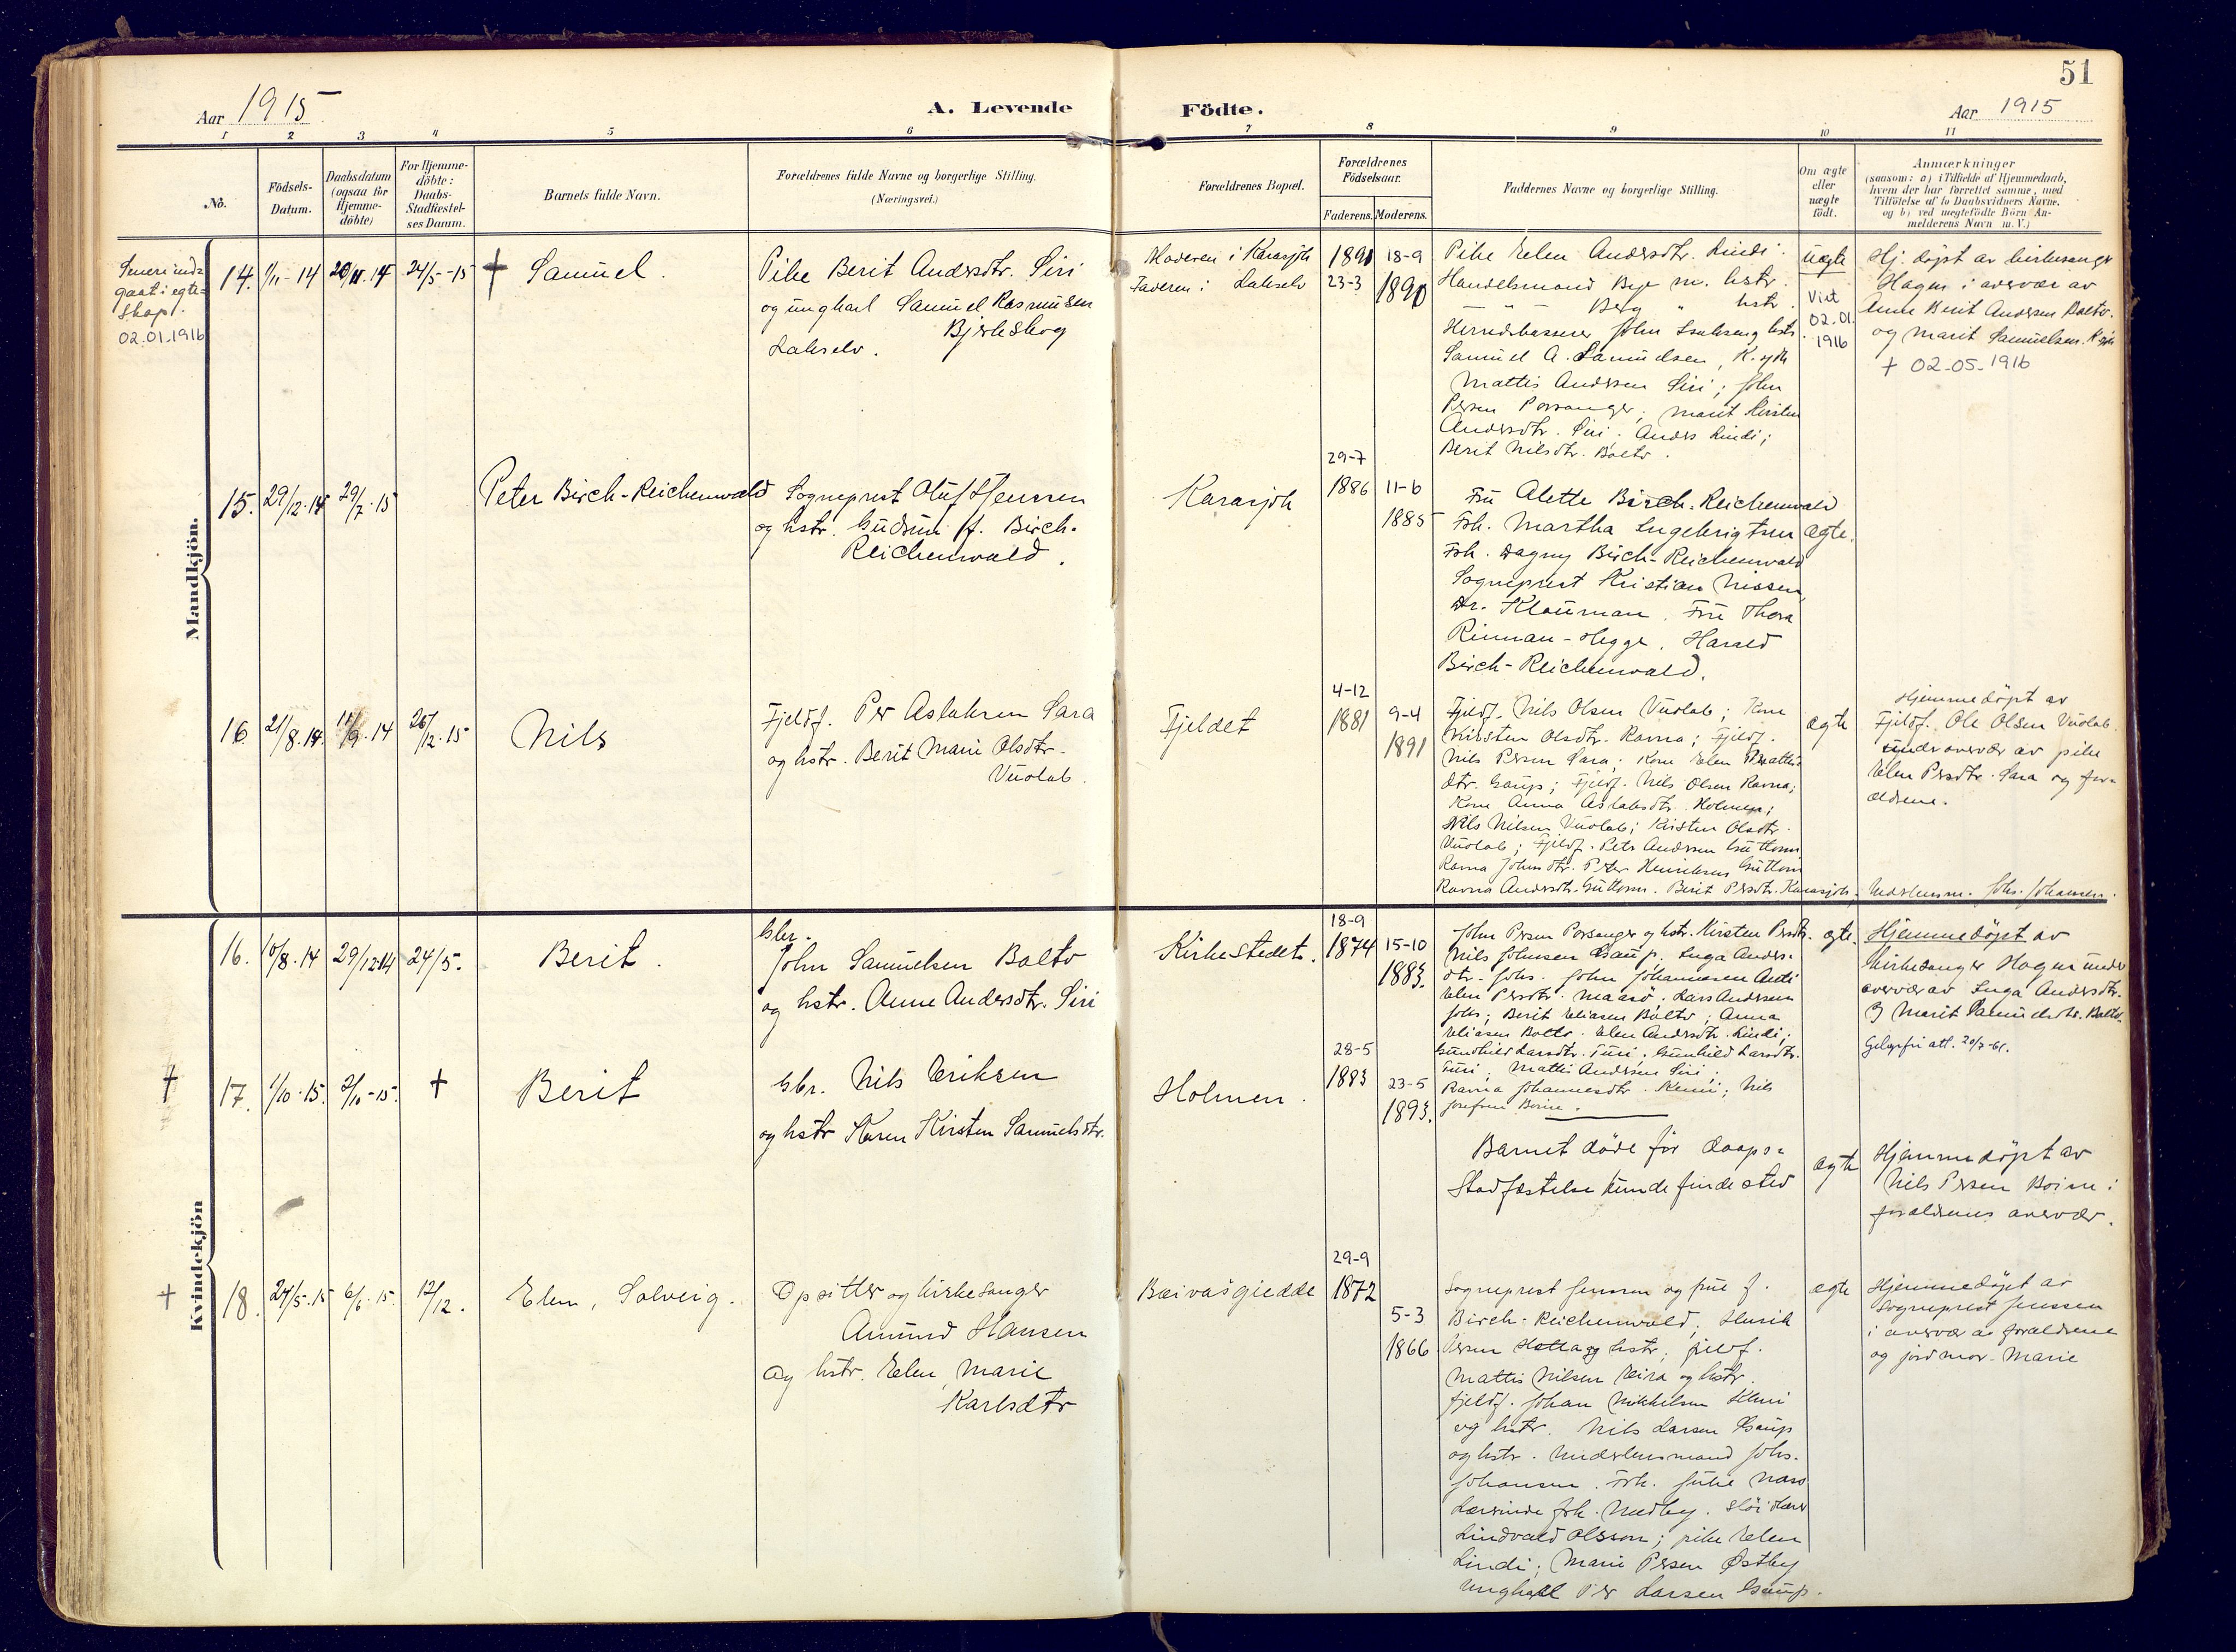 51
Aar 1915
A. Levende
Födte.
Aar 1915
1 2 3 4 5 6 7 8 9 10 11
No.
Födsels-
Datum.
Daabsdatum
(ogsaa for
Hjemme-
döbte)
For Hjemme-
döbte:
Daabs-
Stadfæstel-
ses Datum.
Barnets fulde Navn.
Forældrenes fulde Navne og borgerlige Stilling.
(Næringsvei.)
Forældrenes Bopæl.
Forældrenes
Födselsaar.
Faderens. Moderens.
Faddernes Navne og borgerlige Stilling.
Om ægte
eller
uægte
födt.
Anmærkninger
(saasom: a) i Tilfælde af Hjemmedaab,
hvem der har forrettet samme, med
Tilföielse af to Daabsvidners Navne,
og b) ved uægtefödte Börn An-
melderens Navn m. V.)
Mandkjön.
Senere ind=
gaat i egte=
skap.
02.01.1916
14. 1/11-14 20/11.14 24/5-15 † Samuel.
Pike Berit Andersdtr. Siri
og ungkarl Samuel Rasmussen
Bjerkskog
Lakselv.
Moderen i Karasjok
Faderen i Lakselv
1891
23-3
18-9
1890
Pike Elen Andersdtr. Lindi.
Handelsmand Beje m. hstr.
— " — Berg " hstr.
Herredskasserer John Isaksen og hstr.
Samuel A. Samuelsen, K.sjok
Mattis Andersen Siri; John
Persen Porsanger; Marit Kirsten
Andersdtr. Siri; Anders Lindi;
Berit Nilsdtr. Balto.
Uægte
Viet
02.01.
1916
Hj. døpt av kirkesanger
Hagen i overvær av
Anne Berit Andersen Balto.
og Marit Samuelsen. K.sjok
† 02-05-1916
15. 29/12.14 29/7.15
Peter Birch-Reichenwald
Sogneprest Oluf Jenssen
og hstr. Gudrun f. Birch-
Reichenwald.
Karasjok
29-7
1886
11-6
1885
Fru Alette Birch-Reichenwald
Frk. Martha Ingebrigtsen
Frk. Dagny Birch-Reichenwald
Sogneprest Kristian Nissen,
Dr. Klouman, Fru Thora
Rinnan-Hegge, Harald
Birch-Reichenwald.
ægte.
16. 21/8.14. 11/9.14 26/12.15 Nils
Fjeldf. Per Aslaksen Sara
og hstr. Berit Marie Olsdtr.
Vuolab.
Fjeldet
4-12
1881
9-4
1891
Fjeldf. Nils Olsen Vuolab; Kone
Kirsten Olsdtr. Ravna; Fjeldf.
Nils Persen Sara; Kone Elen Mattis
dtr. Gaup; Fjeldf. Nils Olsen Ravna;
Kone Anna Aslaksdtr. Holmen;
Nils Nilsen Vuolab; Kirsten Olsdtr.
Vuolab; Fjeldf. Peter Andersen Guttorm
Ravna Johnsdtr. Peter Henriksen Guttorm
Ravna Andersdtr. Guttorm. Berit Persdtr. Karasjok. Underlensm. Johs. Johansen.
ægte
Hjemmedøpt av
Fjeldf. Ole Olsen Vuolab.
under overvær av pike
Elen Persdtr. Sara og for=
ældrene.
Kvindekjön
16. 10/8.14 29/12.14 24/5. Berit.
Gbr.
John Samuelsen Balto
og hstr. Anne Andersdtr. Siri
Kirkestedet.
18-9
1874
15-10
1883.
John Persen Porsanger og hstr. Kirsten Persdtr.
Nils Johnsen Gaup. Inga Anders-
dtr. Johs. John Johannesen Anti
Elen Persdtr. Maasø. Lars Andersen
Johs; Berit Eliasen Balto; Anna
Eliasen Balto. Elen Andersdtr. Lindi;
Gundhild Larsdtr. Turi. Gunhild Larsdtr.
Turi, Mattis Andersen Siri.
Ravna Johannesdtr. Kemi; Nils
Josefsen Boine.
ægte.
Hjemmedøpt av
kirkesanger Hagen under
overvær av Inga Andersdtr.
og Marit Samuelsdtr. Balto.
Gebyrfri att. 20/7-61.
† 17. 1/10.15. 3/10-15. † Berit
Gbr. Nils Eriksen
og hstr Karen Kirsten Samuelsdtr.
Holmen.
28-5
1883
23-5
1893.
Barnet døde før daaps=
stadfæstelse kunde finde sted
ægte
Hjemmedøpt av
Nils Persen Boine i
forældrenes overvær.
† 18. 24/5.15 6/6.15. 12/12. Elen, Solveig.
Opsitter og kirkesanger
Amund Hansen
og hstr. Elen, Marie
Karlsdtr
Baivasgiedde
29-9
1872
5-3
1866
Sogneprest Jenssen og frue f.
Birch-Reichenwald; Henrik
Persen Holla og hstr; fjeldf.
Mattis Nilsen Eira og hstr.
fjeldf. Johan Mikkelsen Kemi
og hstr. Nils Larsen Gaup
og hstr. Underlensmand Johs.
Johansen. Frk. Julie Næss
Lærerinde frk. Nedby. Sløidlærer
Lindvald Olsson; pike Elen
Lindi; Marie Persen Østby
Ungkarl Per Larsen Gaup.
ægte
Hjemmedøpt av
sogneprest Jenssen
i overvær av forældrene
og jordmor Marie